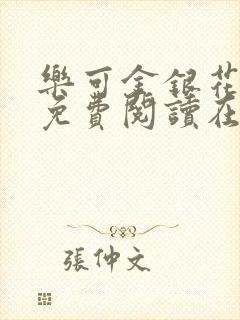 樂可金銀花
免費閱讀在
張仲文